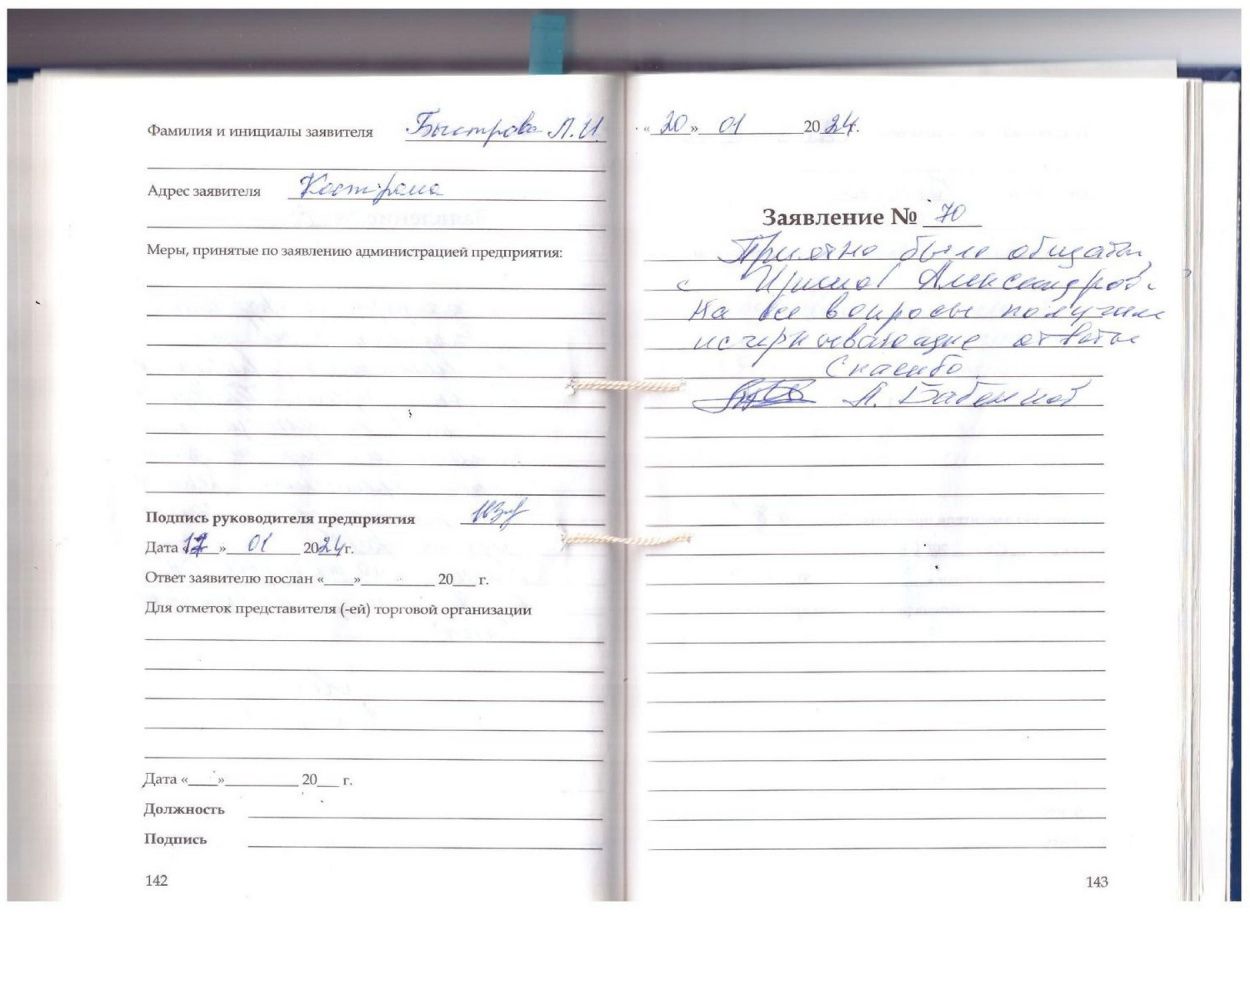 Фамилия и инициалы заявителя Быстрова Л.И.
Адрес заявителя Кострома
Меры, принятые по заявлению администрацией предприятия:
Подпись руководителя предприятия
Дата «17» 01 2024 г.
Ответ заявителю послан «___»__________ 20___ г.
Для отметок представителя (-ей) торговой организации
Дата «____»__________ 20___ г.
Должность
Подпись
142
«20» 01 2024.
Заявление № 70
Приятно было общаться
с Ириной Александров.
На все вопросы получили
исчерпывающие ответы
Спасибо.
А.
143